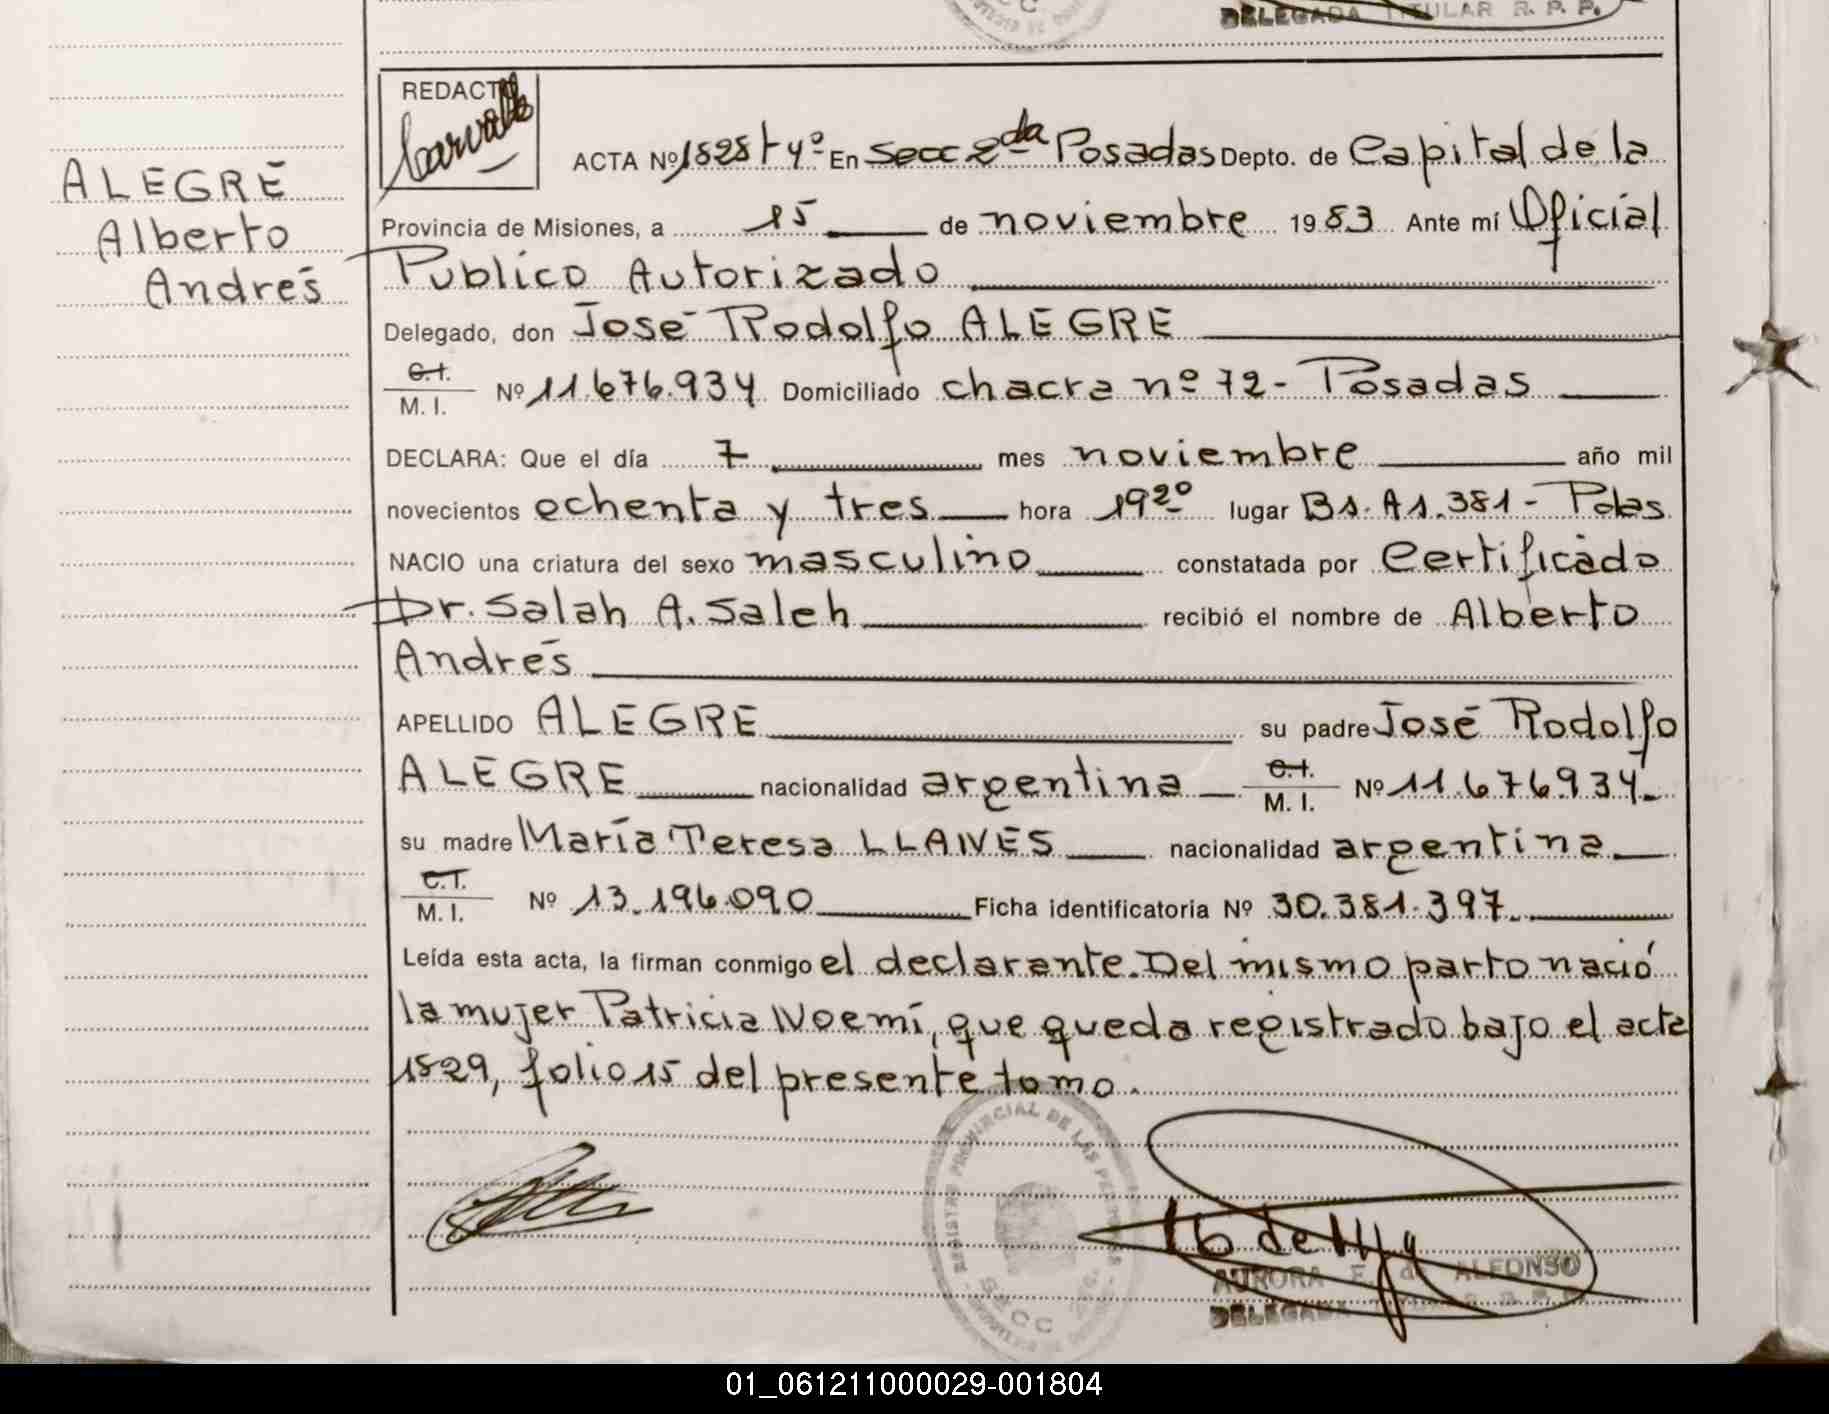 DELEGADA TITULAR R. P. P.
REDACTO
Carvallo
ALEGRE
Alberto
Andrés
ACTA Nº 1828 Tº 4º En Secc 2da Posadas Depto. de Capital de la
Provincia de Misiones, a 15 de noviembre 1983 Ante mí Oficial
Publico Autorizado
Delegado, don José Rodolfo ALEGRE
C.I.
M. I. Nº 11.676.934 Domiciliado chacra nº 72 - Posadas
DECLARA: Que el día 7 mes noviembre año mil
novecientos ochenta y tres hora 19 20 lugar Bs. As. 381 - Pdas
NACIO una criatura del sexo masculino constatada por Certificado
Dr. Salah A. Saleh recibió el nombre de Alberto
Andrés
APELLIDO ALEGRE su padre José Rodolfo
ALEGRE nacionalidad argentina C.I. M. I. Nº 11.676.934
su madre María Teresa LLANES nacionalidad argentina
C.I.
M. I. Nº 13.196.090 Ficha identificatoria Nº 30.381.397
Leída esta acta, la firman conmigo el declarante. Del mismo parto nació
la mujer Patricia Noemí, que queda registrado bajo el acta
1829, folio 15 del presente tomo.
REGISTRO PROVINCIAL DE LAS PERSONAS
AURORA F. de ALFONSO
DELEGADA TITULAR R. P. P.
01_061211000029-001804